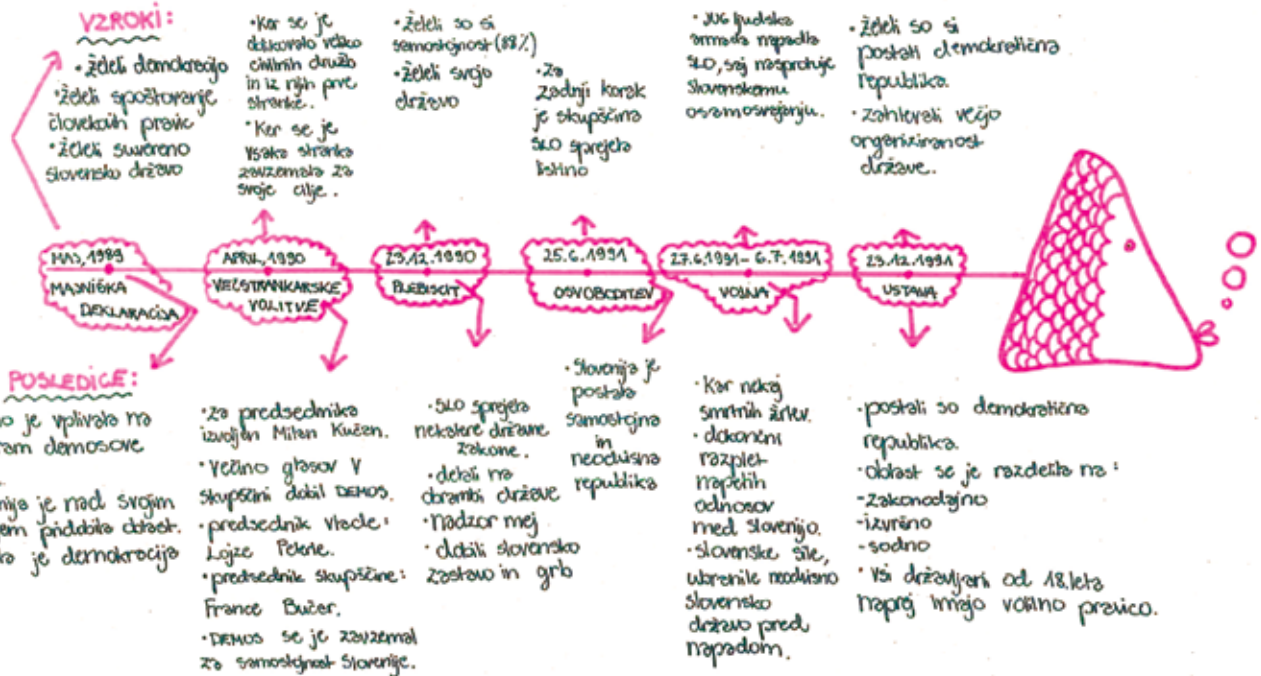 VZROKI:
• želeli demokracijo
• želeli spoštovanje
človekovih pravic
• želeli suvereno
slovensko državo
• Ker se je
oblikovalo veliko
civilnih družb
in iz njih prve
stranke.
• Ker se je
vsaka stranka
zavzemala za
svoje cilje.
• želeli so si
samostojnost (88%)
• želeli svojo
državo
• Za
zadnji korak
je skupščina
SLO sprejela
listino
• JUG ljudska
armada napadla
SLO, saj nasprotuje
slovenskemu
osamosvajanju.
• želeli so si
postati demokratična
republika.
• zahtevali večjo
organiziranost
države.
MAJ, 1989
MAJNIŠKA
DEKLARACIJA
APRIL, 1990
VEČSTRANKARSKE
VOLITVE
23.12.1990
PLEBISCIT
25.6.1991
OSVOBODITEV
27.6.1991 - 6.7.1991
VOJNA
23.12.1991
USTAVA
POSLEDICE:
je vplivala na
demosove
je nad svojim
pridobila oblast.
je demokracija
• za predsednika
izvoljen Milan Kučan.
• Večino glasov v
skupščini dobil DEMOS.
• predsednik vlade:
Lojze Peterle.
• predsednik skupščine:
France Bučer.
• DEMOS se je zavzemal
za samostojnost Slovenije.
• SLO sprejela
nekatere državne
zakone.
• delali na
obrambi države
• nadzor mej
• dobili slovensko
zastavo in grb
• Slovenija je
postala
samostojna
in
neodvisna
republika
• Kar nekaj
smrtnih žrtev.
• dokončni
razplet
napetih
odnosov
med Slovenijo.
• slovenske sile,
ubranile neodvisno
slovensko
državo pred
napadom.
• postali so demokratična
republika.
• oblast se je razdelila na:
- zakonodajno
- izvršno
- sodno
• Vsi državljani od 18.leta
naprej imajo volilno pravico.